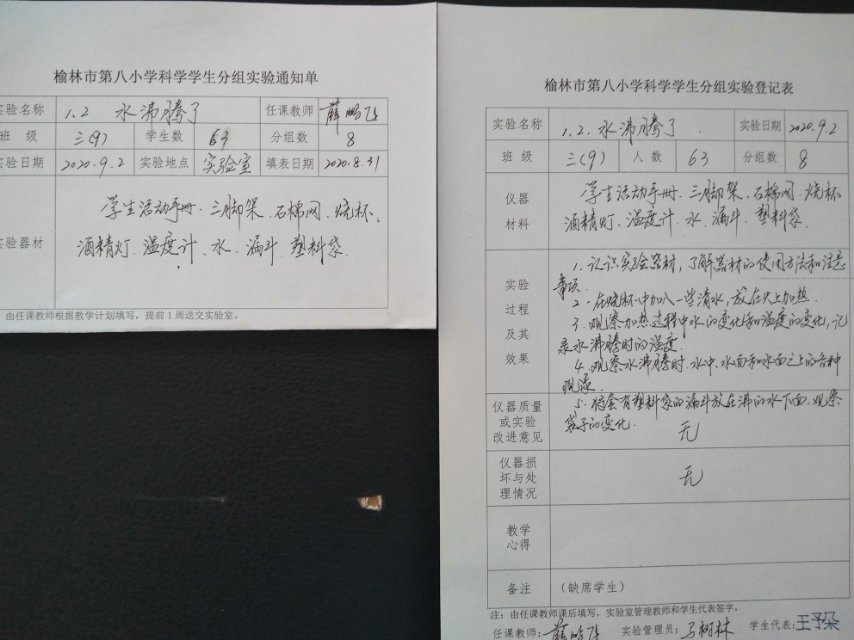 榆林市第八小学科学学生分组实验通知单
实验名称 1.2 水沸腾了 任课教师 薛鹏飞
班 级 三(9) 学生数 63 分组数 8
实验日期 2020.9.2 实验地点 实验室 填表日期 2020.8.31
实验器材
学生活动手册.三脚架.石棉网.烧杯、
酒精灯.温度计.水.漏斗.塑料袋.
由任课教师根据教学计划填写，提前1周送交实验室。
榆林市第八小学科学学生分组实验登记表
实验名称 1.2.水沸腾了. 实验日期 2020.9.2
班 级 三(9) 人 数 63 分组数 8
仪器
材料
学生活动手册.三脚架.石棉网.烧杯
酒精灯.温度计.水.漏斗.塑料袋.
实验
过程
及其
效果
1.认识实验器材，了解器材的使用方法和注意
事项.
2.在烧杯中加入一些清水，放在火上加热.
3.观察加热过程中水的变化和温度的变化，记
录水沸腾时的温度.
4.观察水沸腾时.水中、水面和水面之上的各种
现象.
5.将套有塑料袋的漏斗放在沸的水下面，观察
袋子的变化.
仪器质量
或实验
改进意见
无
仪器损
坏与处
理情况
无
教学
心得
备注 (缺席学生)
注：由任课教师课后填写，实验室管理教师和学生代表签字。
任课教师: 薛鹏飞 实验管理员: 马树林 学生代表: 王予朵